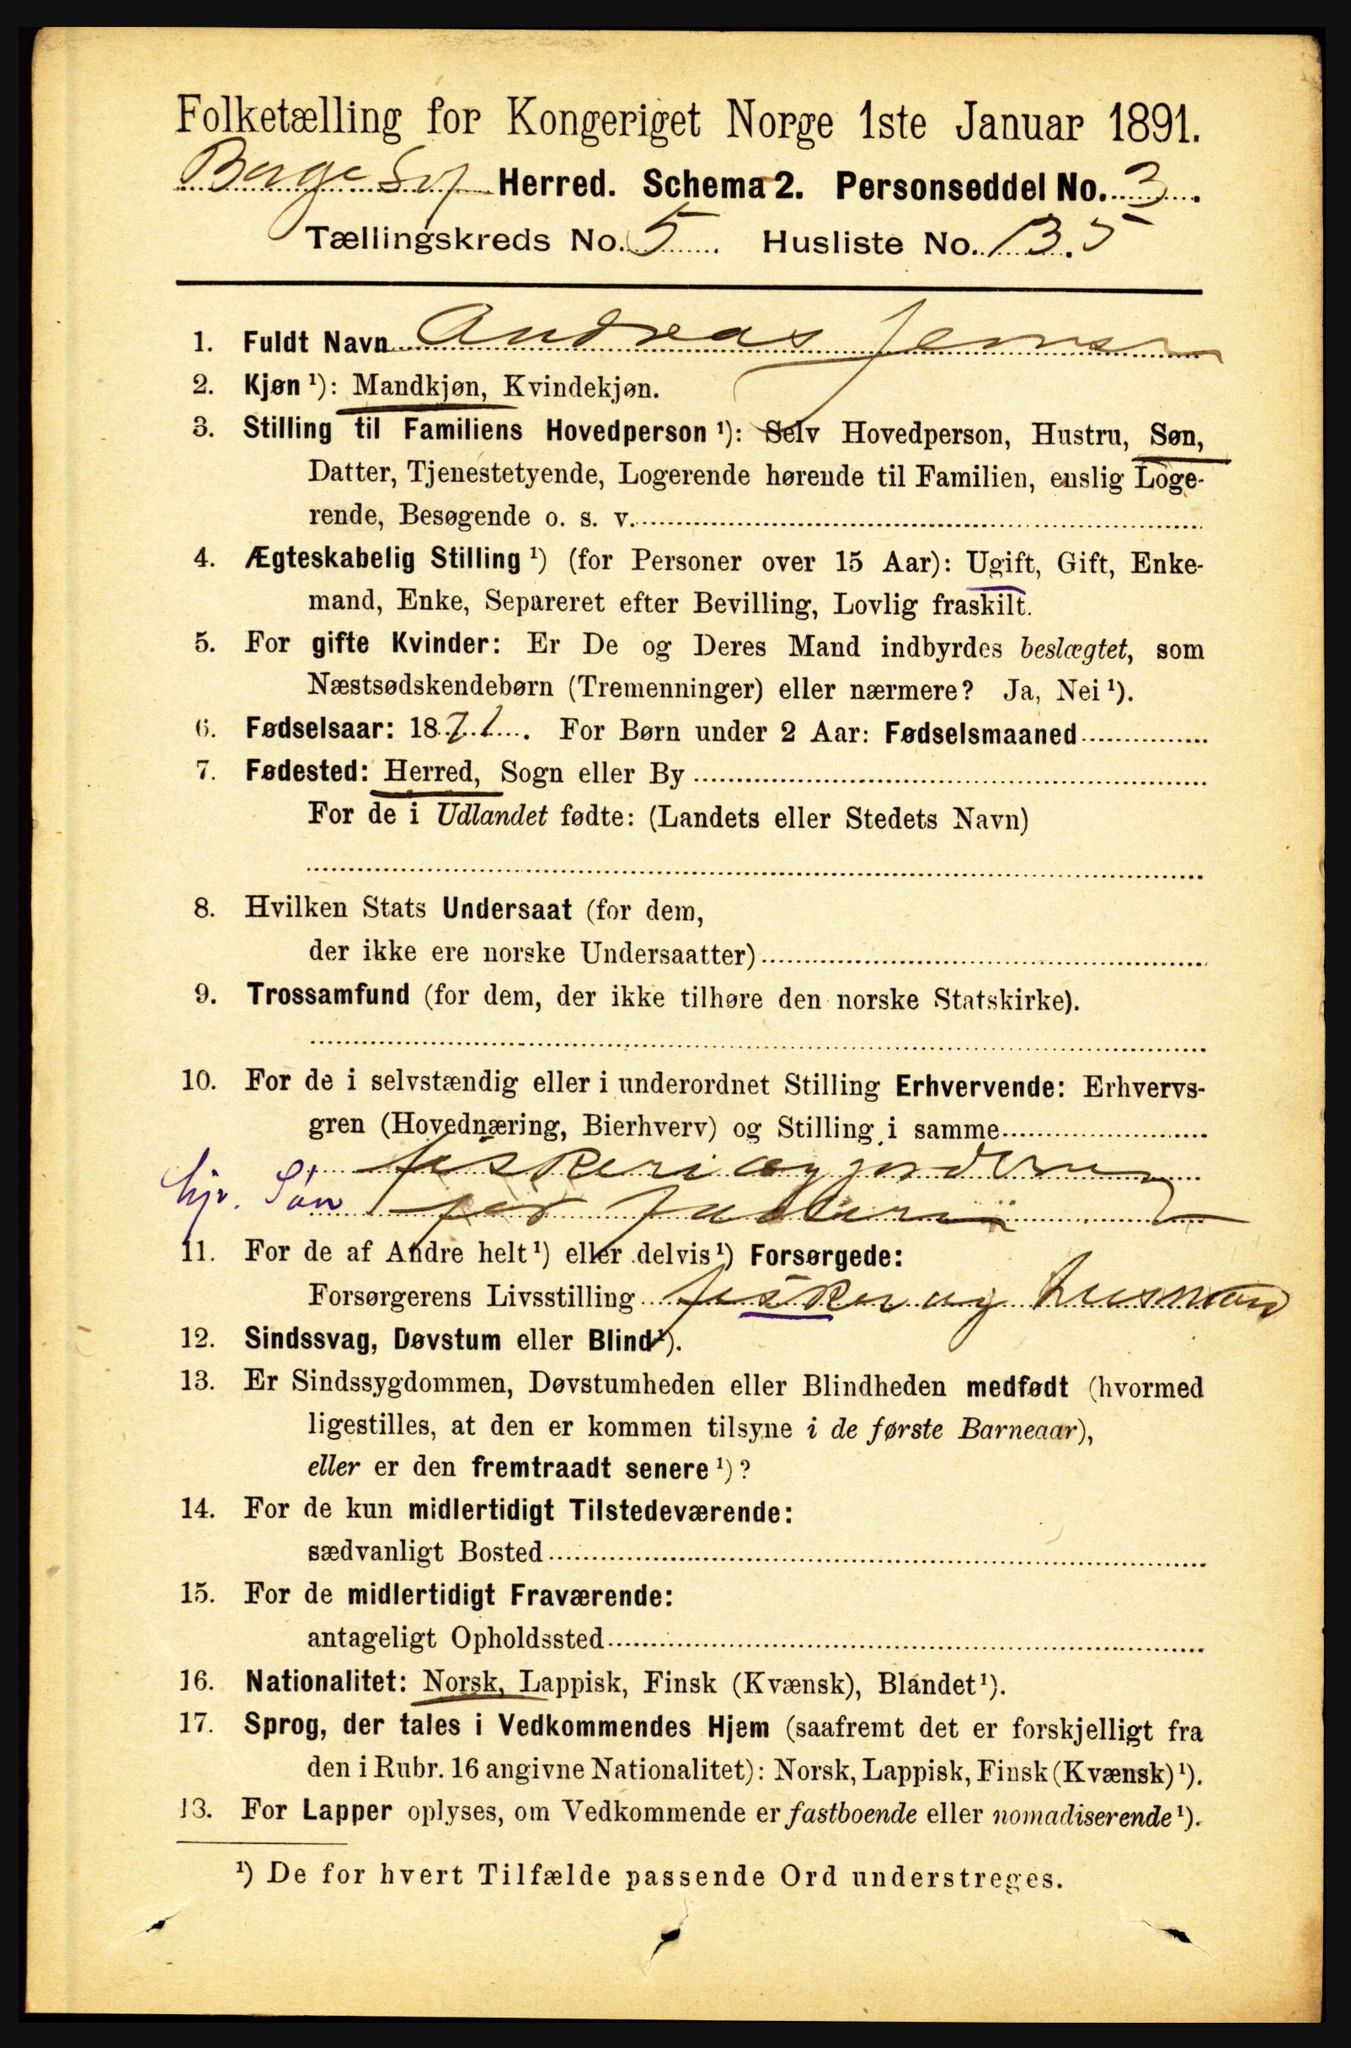 Folketælling for Kongeriget Norge 1ste Januar 1891.
Herred. Schema 2. Personseddel No. 3.
Tællingskreds No. 5. Husliste No. 135
1. Fuldt Navn Andreas Jensen
2. Kjøn ¹): Mandkjøn, Kvindekjøn.
3. Stilling til Familiens Hovedperson ¹): Selv Hovedperson, Hustru, Søn,
Datter, Tjenestetyende, Logerende hørende til Familien, enslig Loge-
rende, Besøgende o. s. v.
4. Ægteskabelig Stilling ¹) (for Personer over 15 Aar): Ugift, Gift, Enke-
mand, Enke, Separeret efter Bevilling, Lovlig fraskilt.
5. For gifte Kvinder: Er De og Deres Mand indbyrdes beslægtet, som
Næstsødskendebørn (Tremenninger) eller nærmere? Ja, Nei ¹).
6. Fødselsaar: 1871. For Børn under 2 Aar: Fødselsmaaned
7. Fødested: Herred, Sogn eller By
For de i Udlandet fødte: (Landets eller Stedets Navn)
8. Hvilken Stats Undersaat (for dem,
der ikke ere norske Undersaatter)
9. Trossamfund (for dem, der ikke tilhøre den norske Statskirke).
10. For de i selvstændig eller i underordnet Stilling Erhvervende: Erhvervs-
gren (Hovednæring, Bierhverv) og Stilling i samme
fiskeri og
hjv. Søn for
11. For de af Andre helt ¹) eller delvis ¹) Forsørgede:
Forsørgerens Livsstilling fisker og husmand
12. Sindssvag, Døvstum eller Blind ¹).
13. Er Sindssygdommen, Døvstumheden eller Blindheden medfødt (hvormed
ligestilles, at den er kommen tilsyne i de første Barneaar),
eller er den fremtraadt senere ¹)?
14. For de kun midlertidigt Tilstedeværende:
sædvanligt Bosted
15. For de midlertidigt Fraværende:
antageligt Opholdssted
16. Nationalitet: Norsk, Lappisk, Finsk (Kvænsk), Blandet ¹).
17. Sprog, der tales i Vedkommendes Hjem (saafremt det er forskjelligt fra
den i Rubr. 16 angivne Nationalitet): Norsk, Lappisk, Finsk (Kvænsk) ¹).
13. For Lapper oplyses, om Vedkommende er fastboende eller nomadiserende ¹).
¹) De for hvert Tilfælde passende Ord understreges.